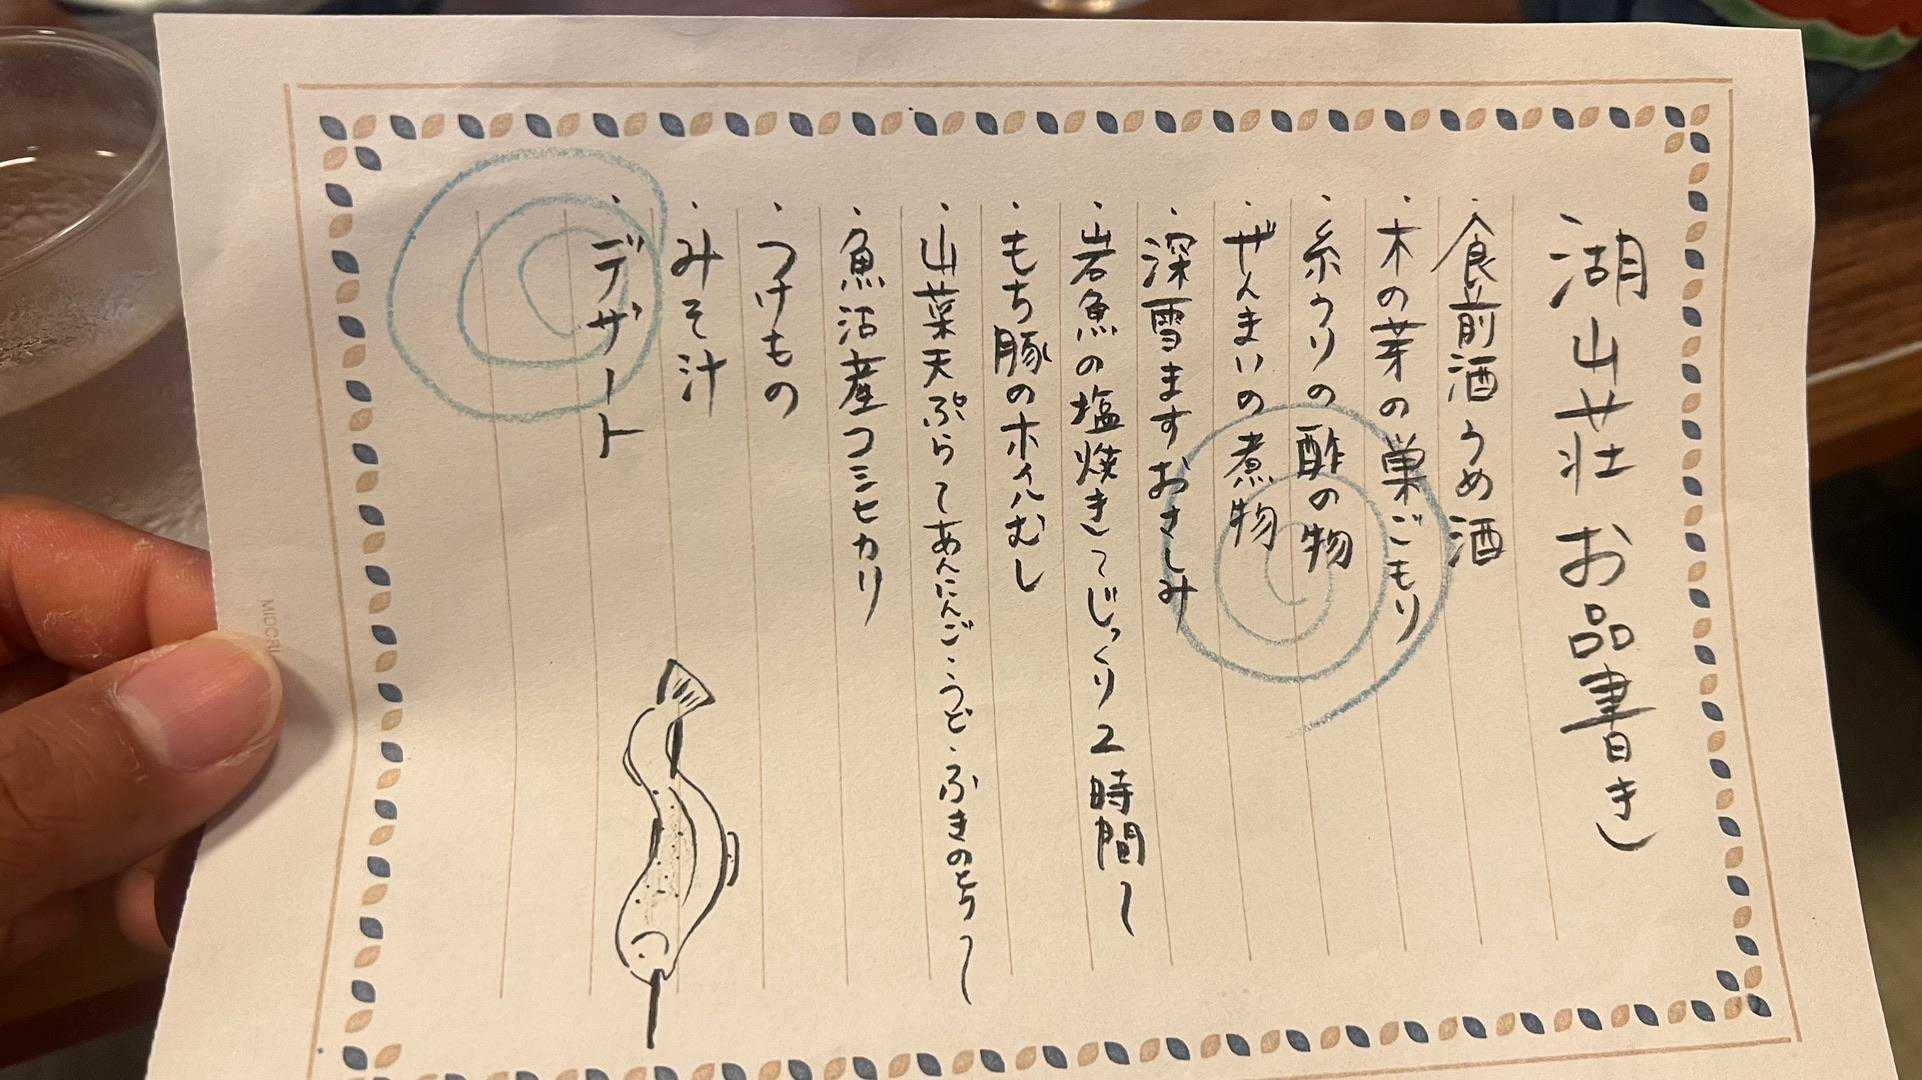 湖山荘 お品書き
・食前酒 うめ酒
・木の芽の巣ごもり
・糸うりの酢の物
・ぜんまいの煮物
・深雪ます おさしみ
・岩魚の塩焼き 〜じっくり2時間〜
・もち豚のホイルむし
・山菜天ぷら 〜あんにんご・うど・ふきのとう〜
・魚沼産コシヒカリ
・つけもの
・みそ汁
・デザート
MIDORI